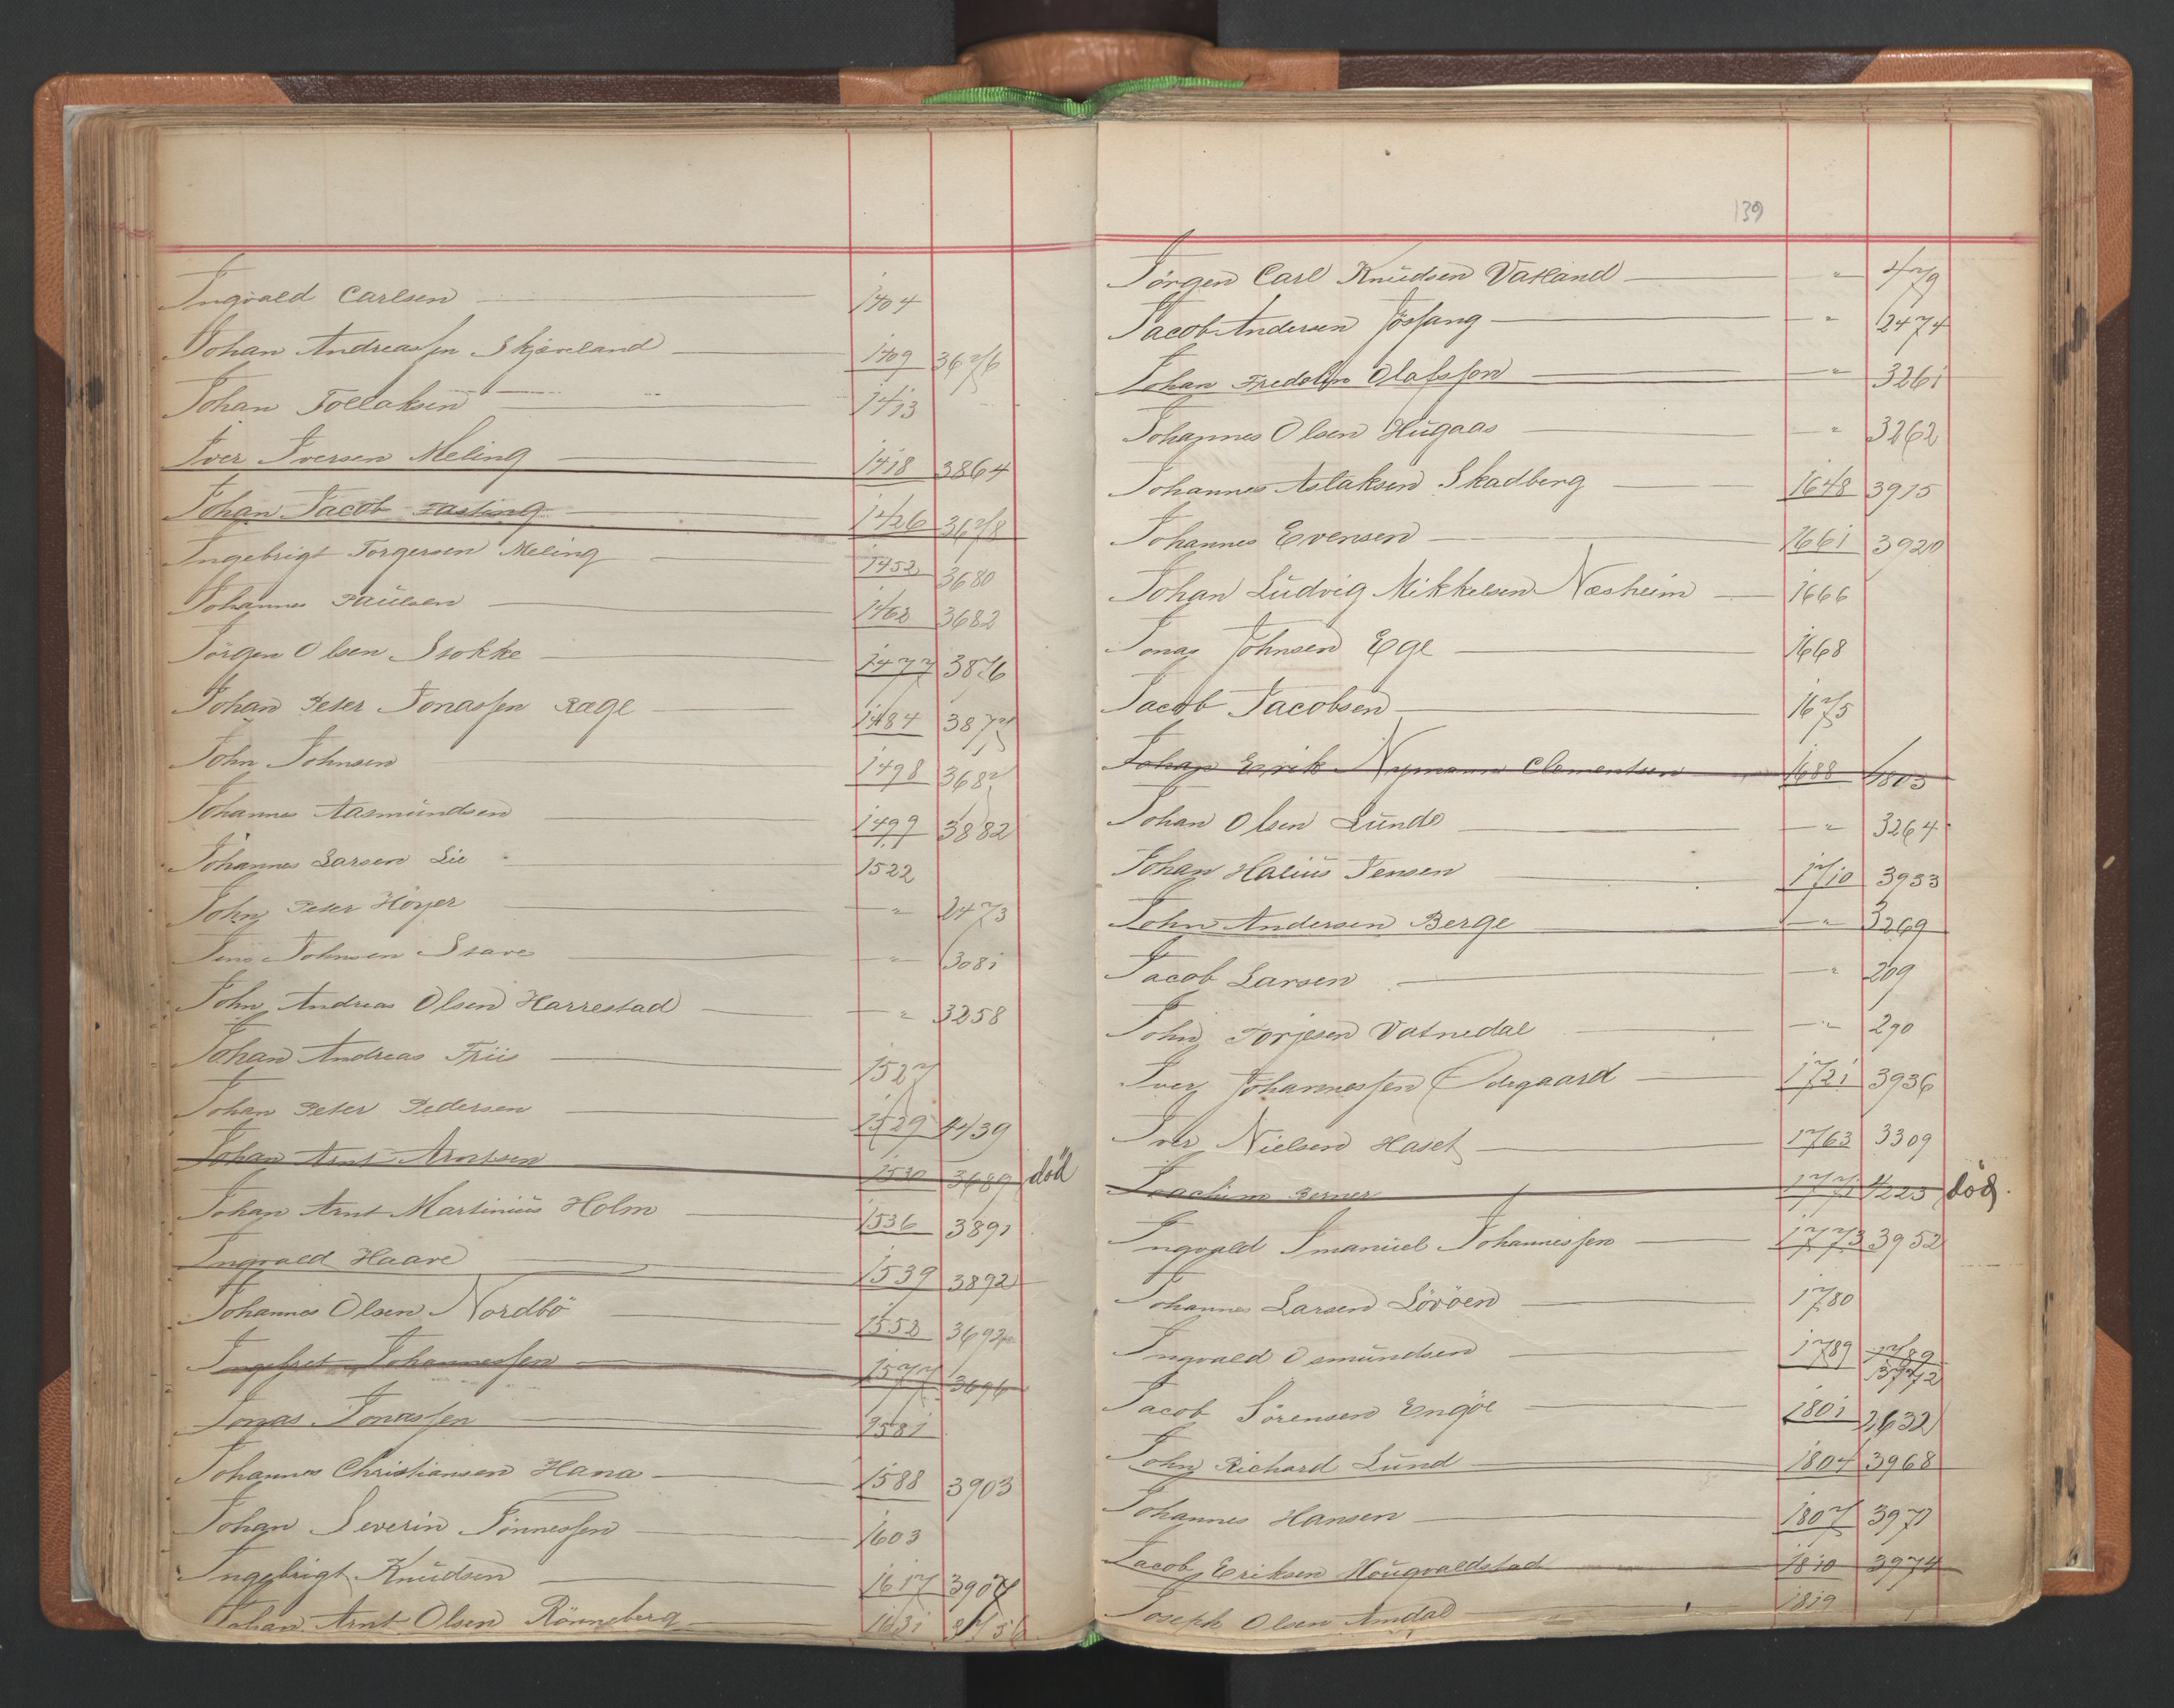 Ingvald Carlsen 1404
Johan Andreassen Skjæveland 1409 3676
Johan Tollaksen 1413
Iver Iversen Meling 1418 3864
Johan Jacob Fasting 1426 3678
Ingebrigt Torgersen Meling 1452 3680
Johannes Paulsen 1462 3682
Jörgen Olsen Stokke 1477 3876
Johan Peter Jonassen Rege 1484 3877
John Johnsen 1498 3687
Johannes Aasmundsen 1499 3882
Johannes Larsen Lie 1522
John Peter Höyer " 2473
Jens Johnsen Stave " 3081
John Andreas Olsen Harrestad " 3258
Johan Andreas Friis 1527
Johan Peter Pedersen 1529 4439
Johan Arnt Arntsen 1530 3689 död
Johan Arnt Martinius Holm 1536 3891
Ingvald Haave 1539 3892
Johannes Olsen Nordbö 1552 3692
Johannessen 1577 3696
Jonas Jonassen 1581
Johannes Christiansen Hana 1588 3903
Johan Severin Tönnessen 1603
Ingebrigt Knudsen 1617 3907
Johan Arnt Olsen Rönneberg 1631
139
Jörgen Carl Knudsen Vatland " 479
Jacob Andersen Jössang " 2474
Johan Fredolin Olafsson " 3261
Johannes Olsen Hugaas " 3262
Johannes Aslaksen Skadberg 1648 3915
Johannes Evensen 1661 3920
Johan Ludvig Mikkelsen Næsheim 1666
Jonas Johnsen Ege 1668
Jacob Jacobsen 1675
Johan Erik Nymann Clementsen 1688 4803
Johan Olsen Lunde " 3264
Johan Halius Jensen 1710 3933
John Andersen Berge " 3269
Jacob Larsen " 209
John Torjesen Vatnedal " 290
Iver Johannessen Ödegaard 1721 3936
Iver Nielsen Haset 1763 3309
Joachim Berner 1771 4223 död.
Ingvald Imanuel Johannessen 1773 3952
Johannes Larsen Lövöen 1780
Ingvald Osmundsen 1789 1789
3772
Jacob Sörensen Engöe 1801 2632
John Richard Lund 1804 3968
Johannes Hansen 1807 3971
Jacob Eriksen Hougvaldstad 1810 3974
Joseph Olsen Amdal 1819